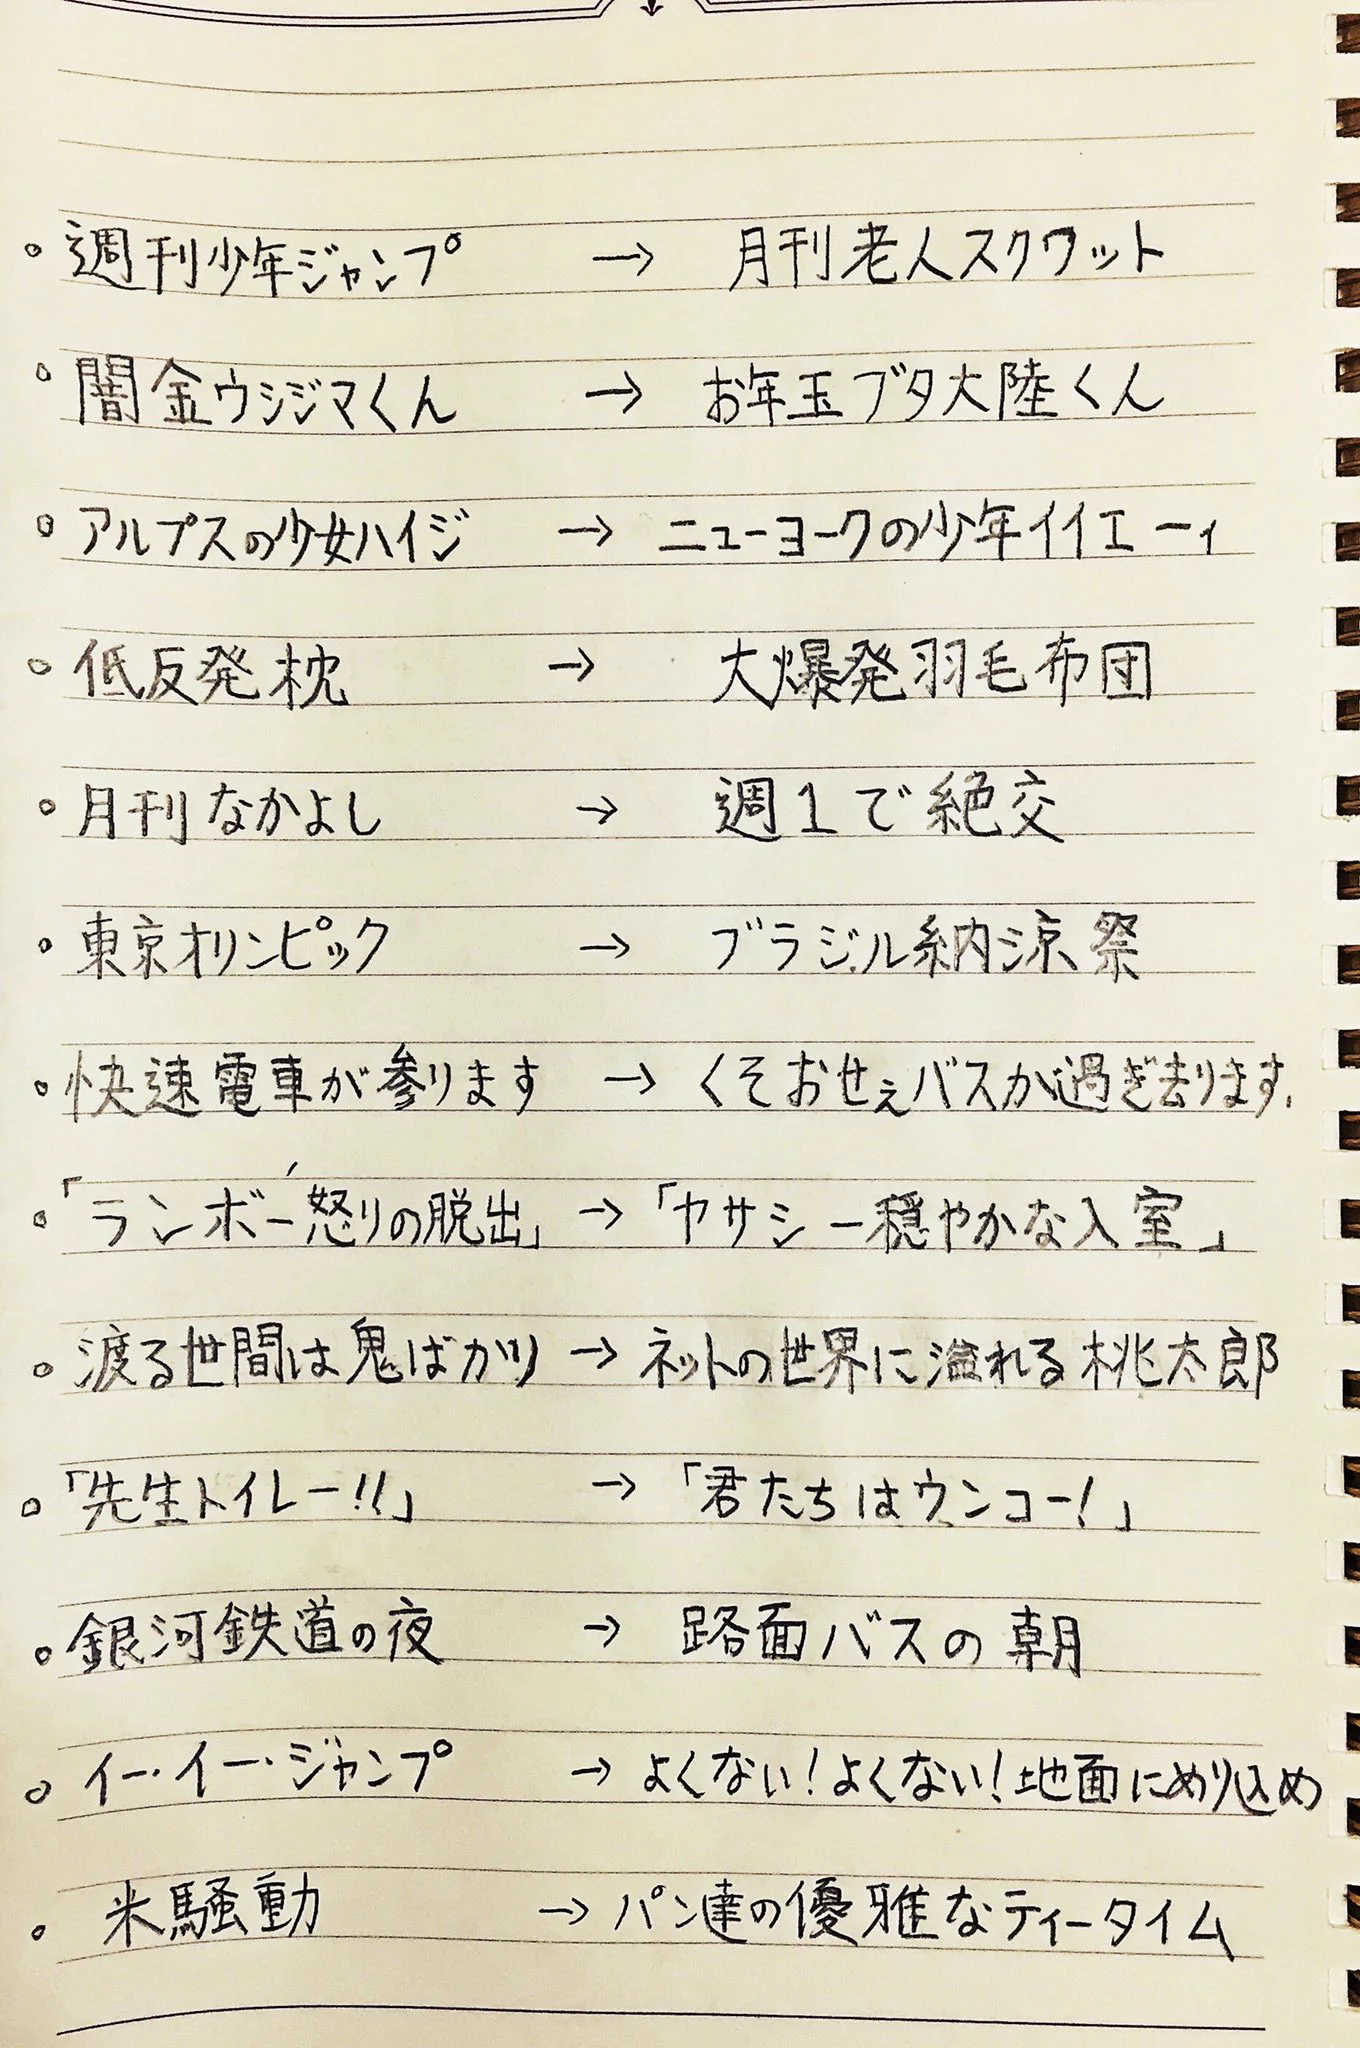 。週刊少年ジャンプ → 月刊老人スクワット
。闇金ウシジマくん → お年玉ブタ大陸くん
。アルプスの少女ハイジ → ニューヨークの少年イイエーィ
。低反発枕 → 大爆発羽毛布団
。月刊なかよし → 週1で絶交
。東京オリンピック → ブラジル納涼祭
。快速電車が参ります → くそおせぇバスが過ぎ去ります.
。「ランボー 怒りの脱出」 → 「ヤサシー穏やかな入室」
。渡る世間は鬼ばかり → ネットの世界に溢れる桃太郎
。「先生トイレー!!」 → 「君たちはウンコー!」
。銀河鉄道の夜 → 路面バスの朝
。イー・イー・ジャンプ → よくない!よくない!地面にめり込め
。米騒動 → パン達の優雅なティータイム